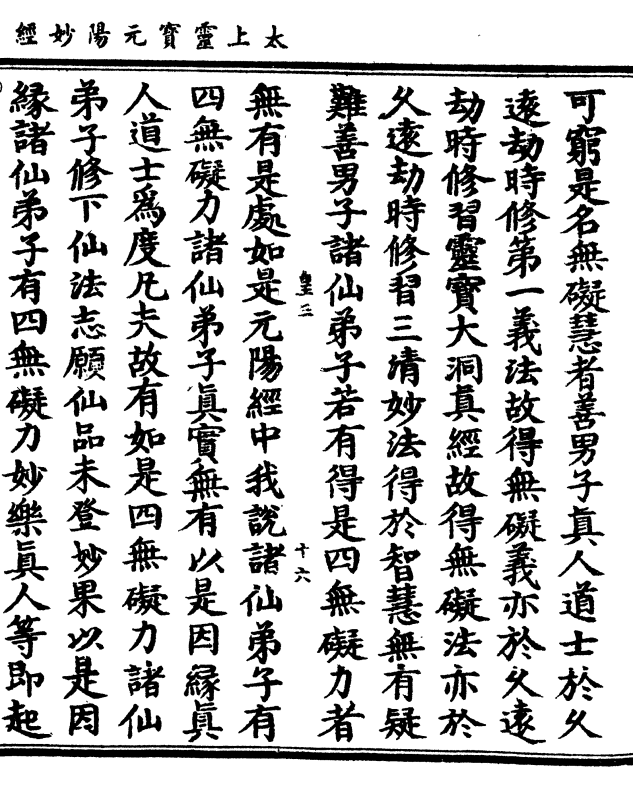 太上靈寶元陽妙經
可窮是名無礙慧者善男子真人道士於久
遠劫時修第一義法故得無礙義亦於久遠
劫時修習靈寶大洞真經故得無礙法亦於
久遠劫時修習三清妙法得於智慧無有疑
難善男子諸仙弟子若有得是四無礙力者
皇三
十六
無有是處如是元陽經中我說諸仙弟子有
四無礙力諸仙弟子眞實無有以是因緣眞
人道士爲度凡夫故有如是四無礙力諸仙
弟子修下仙法志願仙品未登妙果以是因
緣諸仙弟子有四無礙力妙樂眞人等即起